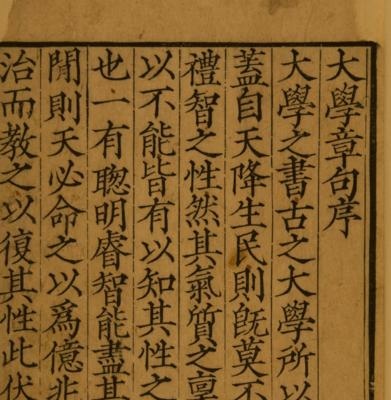 大學章句序
大學之書古之大學所以
蓋自天降生民則旣莫不
禮智之性然其氣質之稟
以不能皆有以知其性之
也一有聰明睿智能盡其
閒則天必命之以爲億兆
治而教之以復其性此伏